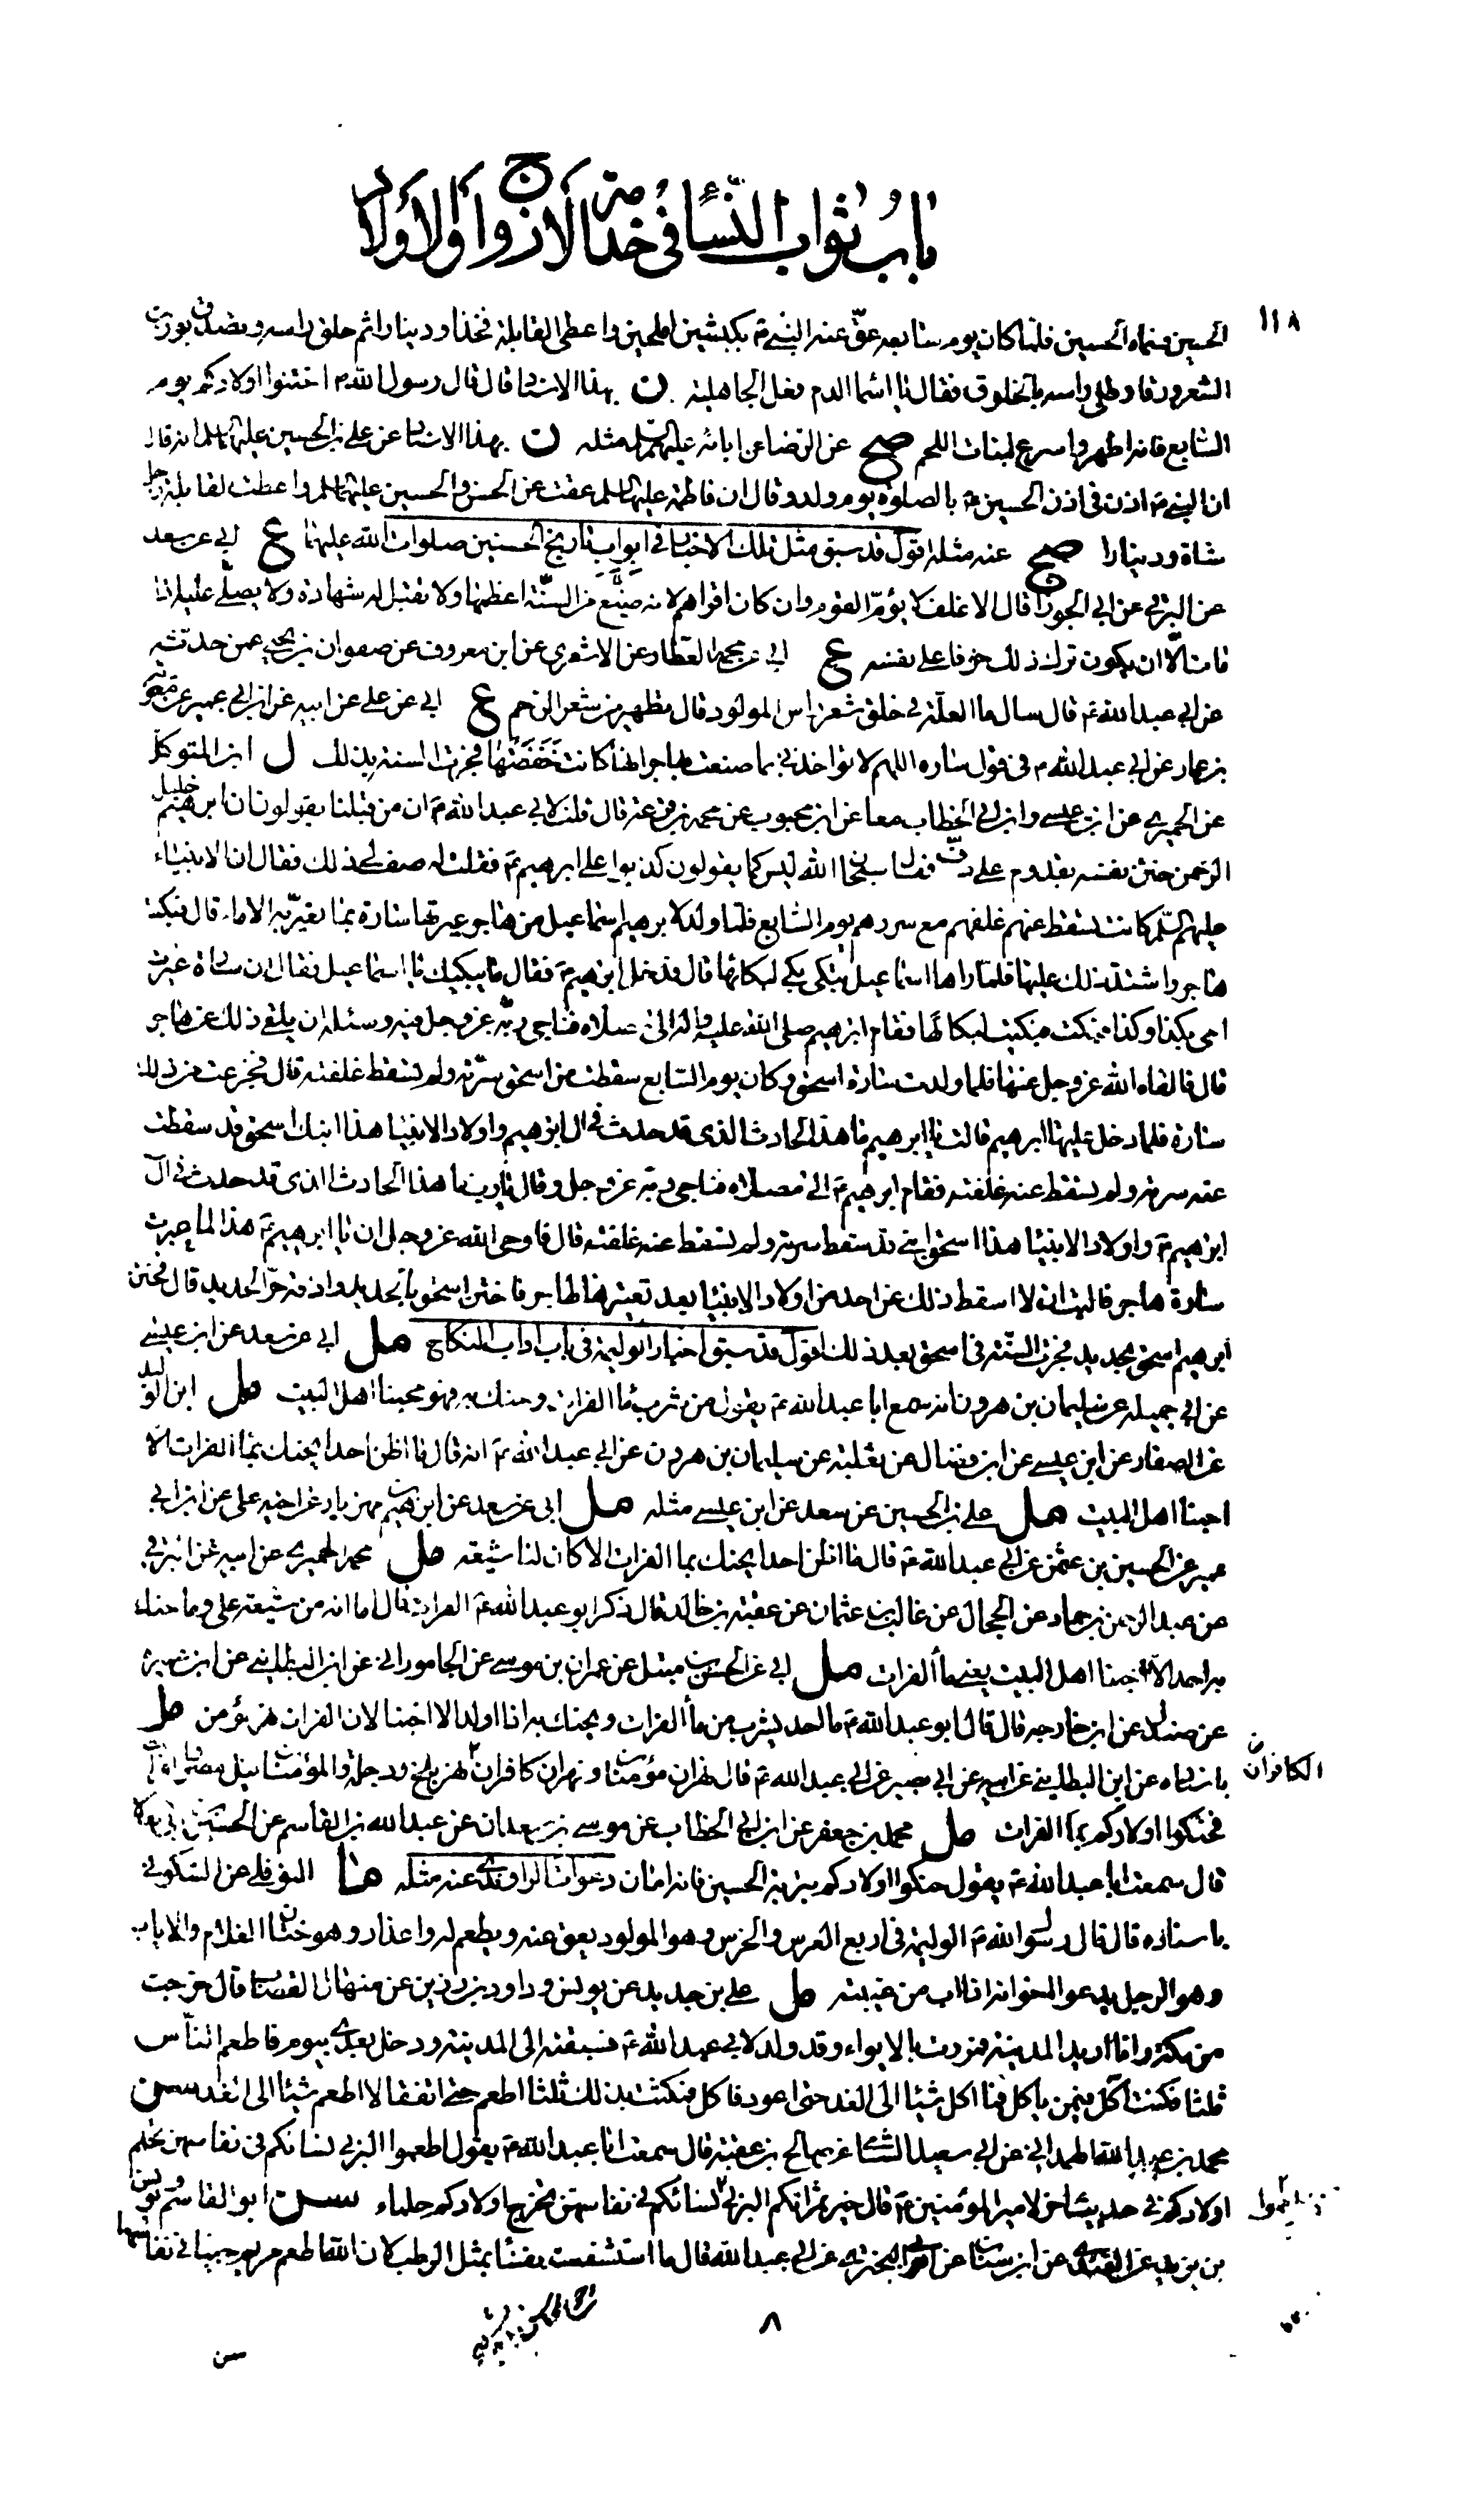 باب ثواب النساء في خدمة الازواج والاولاد
١١٨
الحسين فسماه الحسين فلما كان يوم سابعه عق عنه النبي ص بكبشين املحين واعطى القابلة فخذا ودينارا ثم حلق راسه وتصدق بوزن
الشعر ورقا وطلى راسه بالخلوق فقال يا اسما الدم فعل الجاهلية ن بهذا الاسناد قال قال رسول الله ص اختنوا اولادكم يوم
السابع فانه اطهر واسرع لنبات اللحم صح عن الرضا عن ابائه عليهم السلم مثله ن بهذا الاسناد عن علي بن الحسين عليهما السلم انه قال
ان النبي ص اذن في اذن الحسين ع بالصلوة يوم ولد وقال ان فاطمة عليها السلم عقت عن الحسن والحسين عليهما السلم واعطت القابلة رجل
شاة ودينارا صح عنه مثله اقول قد سبق مثل تلك الاخبار في ابواب تاريخ الحسنين صلوات الله عليهما ع ابي عن سعد
عن البرقي عن ابي الجوزا قال الاغلف لا يؤم القوم وان كان اقراهم لانه ضيع من السنة اعظمها ولا تقبل له شهادة ولا يصلى عليه اذا
مات الا ان يكون ترك ذلك خوفا على نفسه ع ابي عن محمد العطار عن الاشعري عن ابن معروف عن صفوان بن يحيى عمن حدثه
عن ابي عبد الله ع قال سال ما العلة في حلق شعر راس المولود قال تطهيره من شعر الرحم ع ابي عن علي عن ابيه عن ابن ابي عمير عن معوية
بن عمار عن ابي عبد الله ع في قول ساره اللهم لا تؤاخذني بما صنعت بهاجر انها كانت خفضتها فجرت السنة بذلك ل ابن المتوكل
عن الحميري عن ابن عيسى وابن ابي الخطاب معا عن ابن محبوب عن محمد بن قزعة قال قلت لابي عبد الله ع ان من قبلنا يقولون ان ابرهيم خليل
الرحمن ختن نفسه بقدوم على دن فقال سبحان الله ليس كما يقولون كذبوا على ابرهيم ع فقلت له صف لي ذلك فقال ان الانبياء
عليهم السلم كانت تسقط عنهم غلفهم مع سررهم يوم السابع فلما ولد لابرهيم اسماعيل من هاجر عيرتها سارة بما تعير به الاماء قال فبكت
هاجر واشتد ذلك عليها فلما راها اسماعيل تبكي بكى لبكائها قال فدخل ابرهيم ع فقال ما يبكيك يا اسماعيل فقال ان سارة عيرت
امي بكذا وكذا فبكت فبكيت لبكائها فقام ابرهيم صلى الله عليه واله الى مصلاه فناجى ربه عز وجل فيه وسئله ان يلقي ذلك عن هاجر
قال فالقاه الله عز وجل عنها فلما ولدت سارة اسحق وكان يوم السابع سقطت من اسحق سرته ولم تسقط غلفته قال فجزعت من ذلك
سارة فلما دخل عليها ابرهيم قالت يا ابرهيم ما هذا الحادث الذي قد حدث في ال ابرهيم واولاد الانبيا هذا ابنك اسحق قد سقطت
عنه سرته ولم تسقط عنه غلفته فقام ابرهيم ع الى مصلاه فناجى ربه عز وجل وقال يا رب ما هذا الحادث الذي قد حدث في ال
ابرهيم ع واولاد الانبيا هذا اسحق ابني قد سقط سرته ولم تسقط عنه غلفته قال فاوحى الله عز وجل ان يا ابرهيم ع هذا لما عيرت
سارة هاجر فاليت ان لا اسقط ذلك عن احد من اولاد الانبيا بعد تعييرها لهاجر فاختن اسحق بالحديد واذقه حر الحديد قال فختن
ابرهيم اسحق بحديد فجرت السنة في اسحق بعد ذلك اقول قد سبق اخبار الوليمة في باب اداب النكاح مل ابي عن سعد عن ابن عيسى
عن ابي جميلة عن سليمان بن هرون انه سمع ابا عبد الله ع يقول من شرب ماء الفرات وحنك به فهو محبنا اهل البيت مل ابن الوليد
عن الصفار عن ابن عيسى عن ابن فضال عن ثعلبة عن سليمان بن هرون عن ابي عبد الله ع انه قال ما اظن احدا يحنك بماء الفرات الا
احبنا اهل البيت مل علي بن الحسين عن سعد عن ابن عيسى مثله مل ابي عن سعد عن ابرهيم بن مهزيار عن اخيه علي عن ابن ابي
عمير عن الحسين بن عثمن عن ابي عبد الله ع قال ما اظن احدا يحنك بماء الفرات الا كان لنا شيعة مل محمد الحميري عن ابيه عن البرقي
عن عبد الرحمن بن حماد عن الحجال عن غالب بن عثمان عن عقبة بن خالد قال ذكر ابو عبد الله ع الفرات قال اما انه من شيعة علي وما حنك
به احد الا احبنا اهل البيت يعني ماء الفرات مل ابي عن الحسن بن متيل عن عمران بن موسى عن الجاموراني عن ابن البطايني عن ابن عميرة
عن صندل عن ابن خارجه قال قال ابو عبد الله ع ما احد يشرب من ماء الفرات ويحنك به اذا ولد الا احبنا لان الفرات نهر مؤمن مل
باسناده عن ابن البطايني عن ابيه عن ابي بصير عن ابي عبد الله ع قال نهران مؤمنان ونهران كافران نهر بلخ ودجلة والمؤمنان نيل مصر والفرات
الكافران
فحنكوا اولادكم بماء الفرات مل محمد بن جعفر عن ابن ابي الخطاب عن موسى بن سعدان عن عبد الله بن القاسم عن الحسين بن ابي العلا
قال سمعت ابا عبد الله ع يقول حنكوا اولادكم بتربة الحسين فانه امان دعوات الراوندي عنه مثله ما النوفلي عن السكوني
باسناده قال قال رسول الله ص الوليمة في اربع العرس والخرس وهو المولود يعق عنه ويطعم له واعذار وهو ختان الغلام والاياب
وهو الرجل يدعو اخوانه اذا اب من غيبته مل علي بن حديد عن يونس وداود بن رزين عن منهال القصاب قال خرجت
من مكة وانا اريد المدينة فمررت بالابواء وقد ولد لابي عبد الله ع فسبقته الى المدينة ودخل بعدي بيوم فاطعم الناس
ثلثا فكنت اكل فيمن ياكل فما اكل شيئا الى الغد حتى اعود فاكل فمكثت بذلك ثلثا اطعم حتى ارتفقا لا اطعم شيئا الى الغد سن
محمد بن عبد الله الهمداني عن ابي سعيد الشامي عن صالح بن عقبة قال سمعت ابا عبد الله ع يقول اطعموا البرني نسائكم في نفاسهن تحلم
اولادكم في حديث اخر لامير المؤمنين ع قال خير تمراتكم البرني نسائكم في نفاسهن تخرج اولادكم حلماء سن ابو القاسم ويونس
فاطعموا
بن يزيد عن القندي عن ابن سنان عن ابي البختري عن ابي عبد الله قال ما استشفت نفسا بمثل الرطب لان الله اطعم مريم جنيا في نفاسها
٨
سن